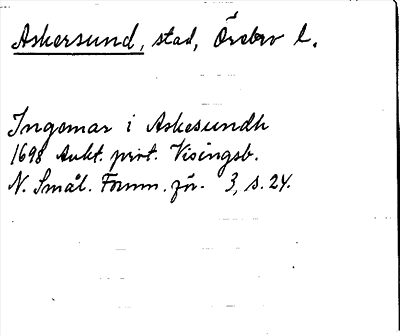 Askersund, stad, Örebro l.
Ingomar i Askesundh
1698 Aukt. prot. Visingsb.
N. Smål. Fornm. för. 3, s. 24.